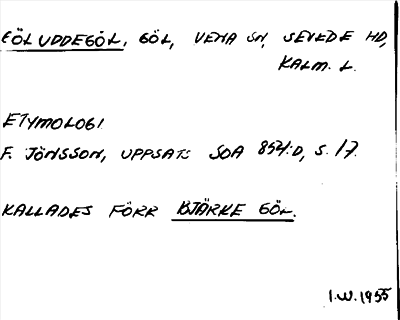 GÖLUDDEGÖL, GÖL, VENA SN, SEVEDE HD,
KALM. L.
ETYMOLOGI
F. JÖNSSON, UPPSATS SOA 854:D, S. 17.
KALLADES FÖRR BJÄRKE GÖL.
I.W. 1955